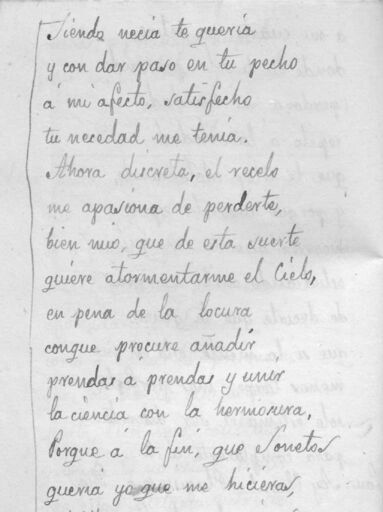 Siendo necia te quería
y con dar paso en tu pecho
á mi afecto, satisfecho
tu necedad me tenia.
Ahora discreta, el recelo
me apasiona de perderte,
bien mio, que de esta suerte
quiere atormentarme el Cielo,
en pena de la locura
conque procuré añadir
prendas á prendas y unir
la ciencia con la hermosura.
Porque á la fin, que Sonetos
queria yo que me hicieras,